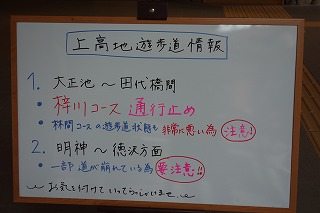 上高地遊歩道情報
1. 大正池 ～ 田代橋間
・梓川コース 通行止め
・林間コースの遊歩道状態も非常に悪い為 注意!
2. 明神 ～ 徳沢方面
・一部道が崩れている為 要注意!!
～お気を付けていってらっしゃいませ～